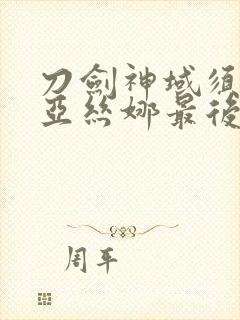 刀劍神域須
亞絲娜最後
周平